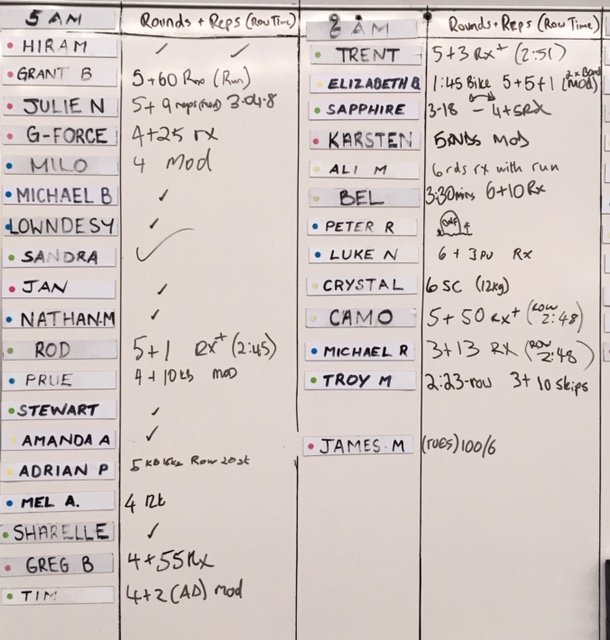 5 AM Rounds + Reps (Row Time)
HIRAM ✓ ✓
GRANT B 5+60 Rx (Run)
JULIE N 5+9 reps(mod) 3.04.8
G-FORCE 4+25 rx
MILO 4 Mod
MICHAEL B ✓
LOWNDESY ✓
SANDRA ✓
JAN ✓
NATHAN.M ✓
ROD 5+1 Rx+ (2:45)
PRUE 4+10 mod
STEWART ✓
AMANDA A ✓
ADRIAN P 5 Row
MEL A. 4
SHARELLE ✓
GREG B 4+55 Rx
TIM 4+2 (AD) mod
8 AM Rounds+Reps (Row Time)
TRENT 5+3 Rx+ (2:51)
ELIZABETH B 1:45 Bike 5+5+1 (2x Band mod)
SAPPHIRE 3-18 - 4+5RX
KARSTEN 5RNDS MOD
ALI M 6rds rx with run
BEL 3:30mins 6+10 Rx
PETER R
LUKE N 6 + 3PU Rx
CRYSTAL 6 SC (12kg)
CAMO 5+50 Rx+ (ROW 2:48)
MICHAEL R 3+13 RX (ROW 2:48)
TROY M 2:23-row 3+10 skips
JAMES.M (TUES) 100/6